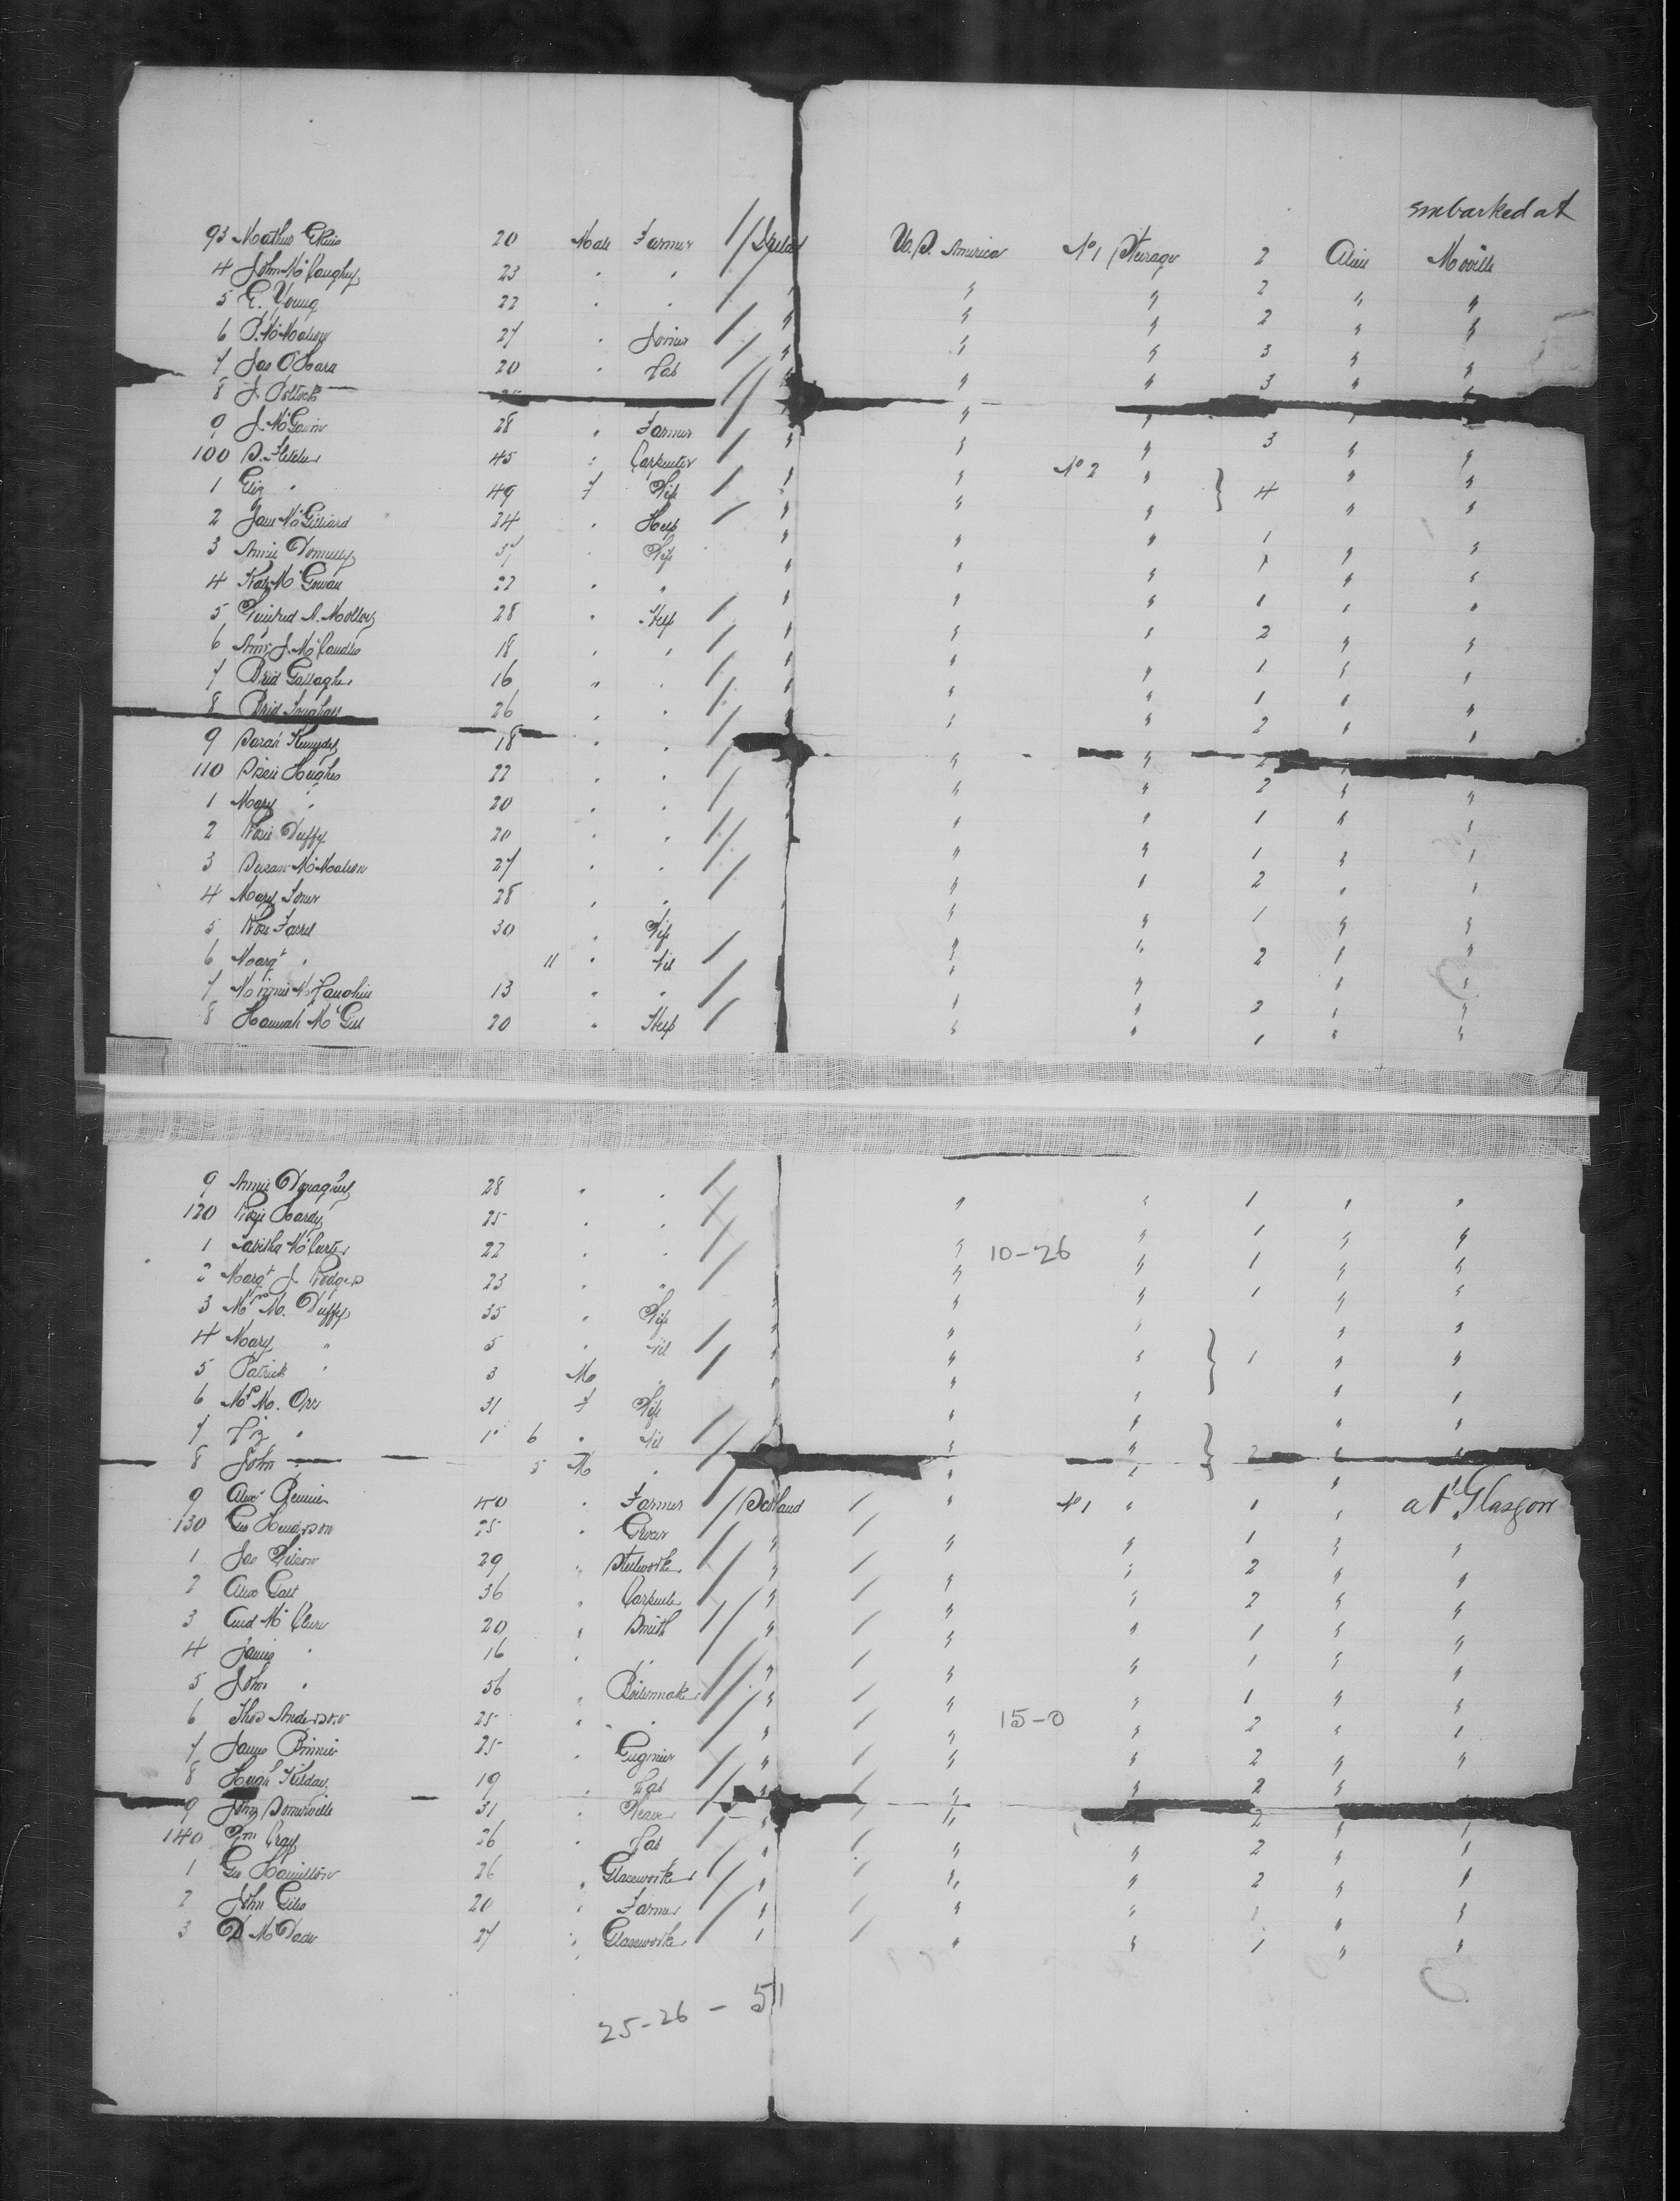 embarked at
93 20 Male Farmer Ireland U.S. America No 1 Steerage 2 Moville
4 John McCaughey 23 " " " " 2 " "
5 G. Young 22 " " " " " 2 " "
6 P. McMahon 27 " Joiner " " " 3 " "
7 Jas O'Hara 20 " Lab " " " 3 " "
8 J. Pollock
9 J. McGovern 28 " Farmer " " " 3 " "
100 S. Fletcher 45 " Carpenter " " No 2 " " "
1 Eliz " 49 F Wife " " " } 4 " "
2 Jane 24 " Help " " " 1 " "
3 Annie Donnelly 37 " Wife " " " 1 " "
4 McGowan 22 " " " " " 1 " "
5 Winifred A. Molloy 28 " Help " " " 2 " "
6 J. McCandless 18 " " " " " 1 " "
7 Brid Gallagher 16 " " " " " 1 " "
8 Brid 26 " " " " " 2 " "
9 Sarah Kennedy 18 " " " "
110 Hughes 22 " " " " " 2 " "
1 Mary " 20 " " " " " 1 " "
2 Rose Duffy 20 " " " " " 1 " "
3 Susan McMahon 27 " " " " " 2 " "
4 Mary 28 " " " " " 1 " "
5 Rose Farrel 30 " Wife " " " 2 " "
6 Margt " 11 " Nil " " " "
7 Minnie 13 " " " " " 2 " "
8 Hannah McGill 20 " Help " " 1 " "
9 Annie 28 " " " " 1 " "
120 Rose Hardy 25 " " " " 1 " "
1 Tabitha McCarter 22 " " " 10-26 " 1 " "
2 Margt J. Rodgers 23 " " " " 1 " "
3 Mrs M. Duffy 35 " Wife " " " " "
4 Mary " 5 " Nil " " " } 1 " "
5 Patrick " 3 M " " " " "
6 Mrs M. Orr 31 F Wife " " " " "
7 Liz " 1 6 " Nil " " " } 2 " "
8 John " 5 M " " "
9 Alexr Rennie 40 " Farmer Scotland " No 1 " 1 " at Glasgow
130 Geo Henderson 25 " Grocer " " " 1 " "
1 Jas Wilson 29 " Steelworker " " " 2 " "
2 Alex Galt 36 " Carpenter " " " 2 " "
3 McClure 20 " Smith " " " 1 " "
4 James " 16 " " " " " 1 " "
5 John " 56 " Boilermaker " " " 1 " "
6 Thos Anderson 25 " " " " 15-0 " 2 " "
7 James Binnie 25 " Engineer " " " 2 " "
8 Hugh 19 " Lab " " " 2 "
9 Somerville 31 " Weaver " " 2 " "
140 Wm Cray 26 " Lab " " " 2 " "
1 Geo Hamilton 26 " Glassworker " " " 2 " "
2 John Giles 20 " Farmer " " " 1 " "
3 D McDade 27 " Glassworker " " " 1 " "
25-26 - 511